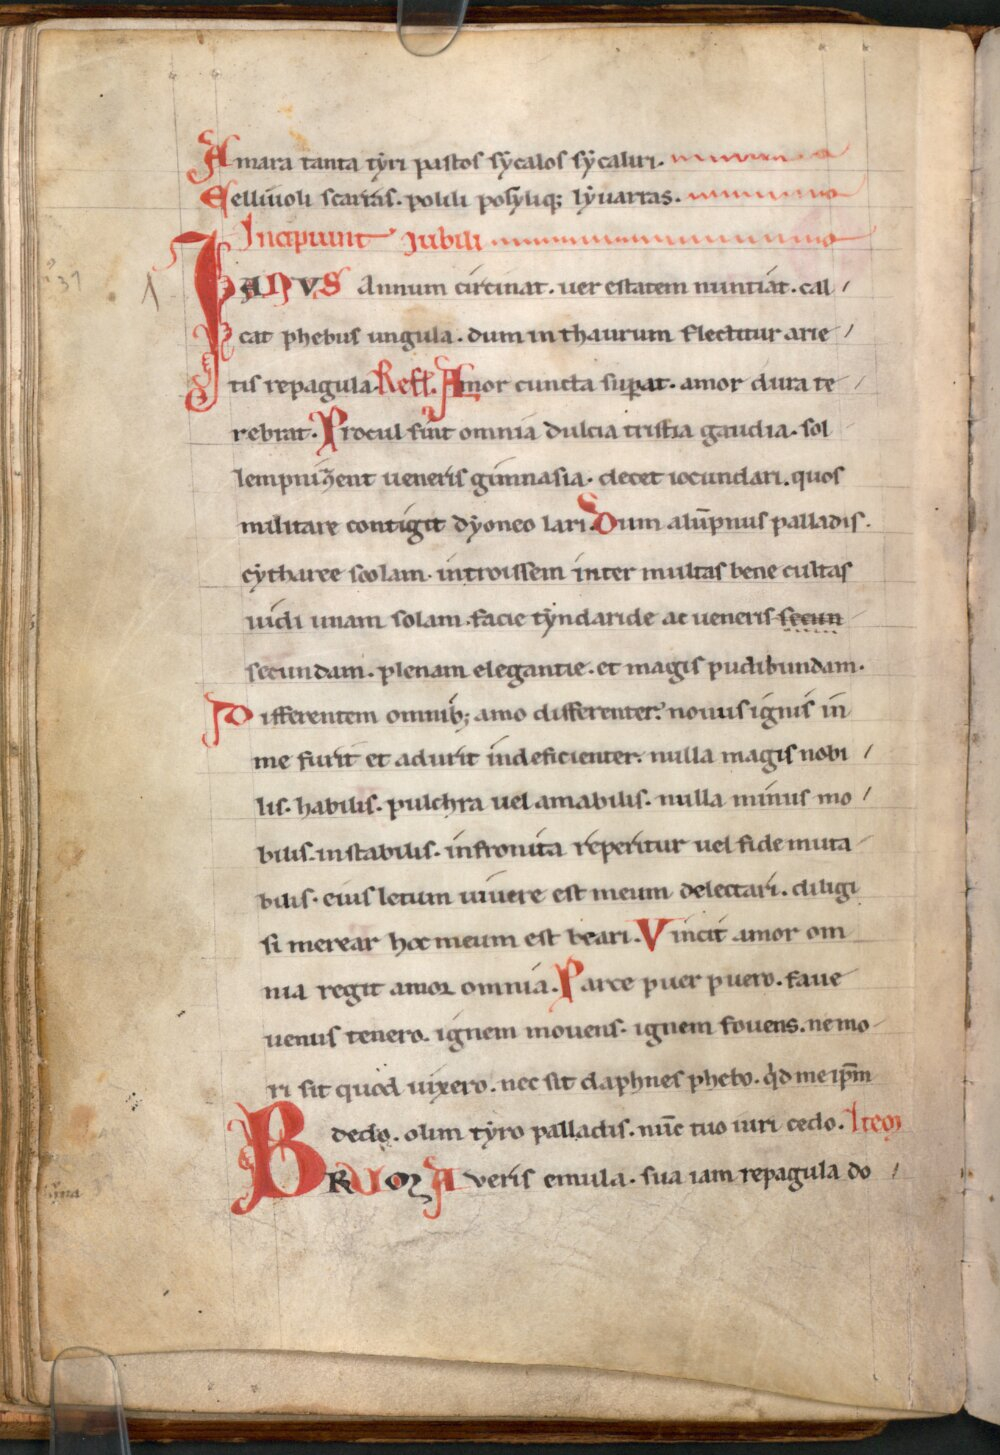 Amara tanta tẏri pastos sẏcalos sẏcaliri.
Ellivoli scarras. polili posẏliq; lẏvarras.
Incipiunt Jubili
IANVS Annum circinat. uer estatem nuntiat. cal
cat phebus ungula. dum in thaurum flectitur arie
tis repagula. Refl. Amor cuncta suꝑat. amor dura te
rebrat. Procul sint omnia dulcia tristia gaudia. sol
lempnizent ueneris gimnasia. decet iocundari. quos
militare contigit dẏoneo lari. Dum alūpnus palladis.
cẏtharee scolam. introissem inter multas bene cultas
uidi unam solam. facie tẏndaride ac ueneris secun
secundam. plenam elegantie. et magis pudibundam.
Differentem omnib; amo differenter. nouus ignis in
me furit et adurit indeficienter. nulla magis nobi
lis. habilis. pulchra uel amabilis. nulla minus mo
bilis. instabilis. infronita reperitur uel fide muta
bilis. eius letum uiuere est meum delectari. diligi
si merear hoc meum est beari. Vincit amor om
nia regit amor omnia. Parce puer puero. faue
uenus tenero. ignem mouens. ignem fouens. ne mo
ri sit quod uixero. nec sit daphnes phebo. q̇d me ip̄m
dedo. olim tẏro palladis. nūc tuo iuri cedo. Item
BRUMA veris emula. sua iam repagula do